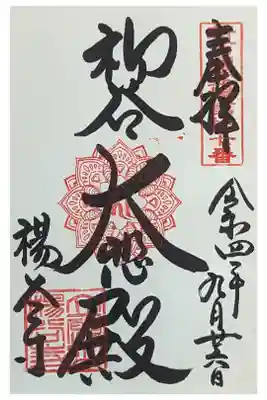 奉拝
令和四年九月廿六日
柳谷
大悲殿
楊谷寺